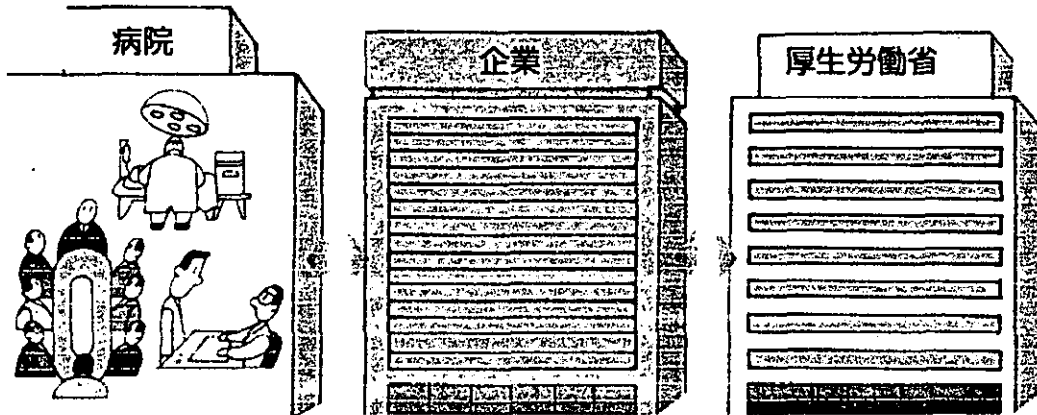 病院
企業
厚生労働省